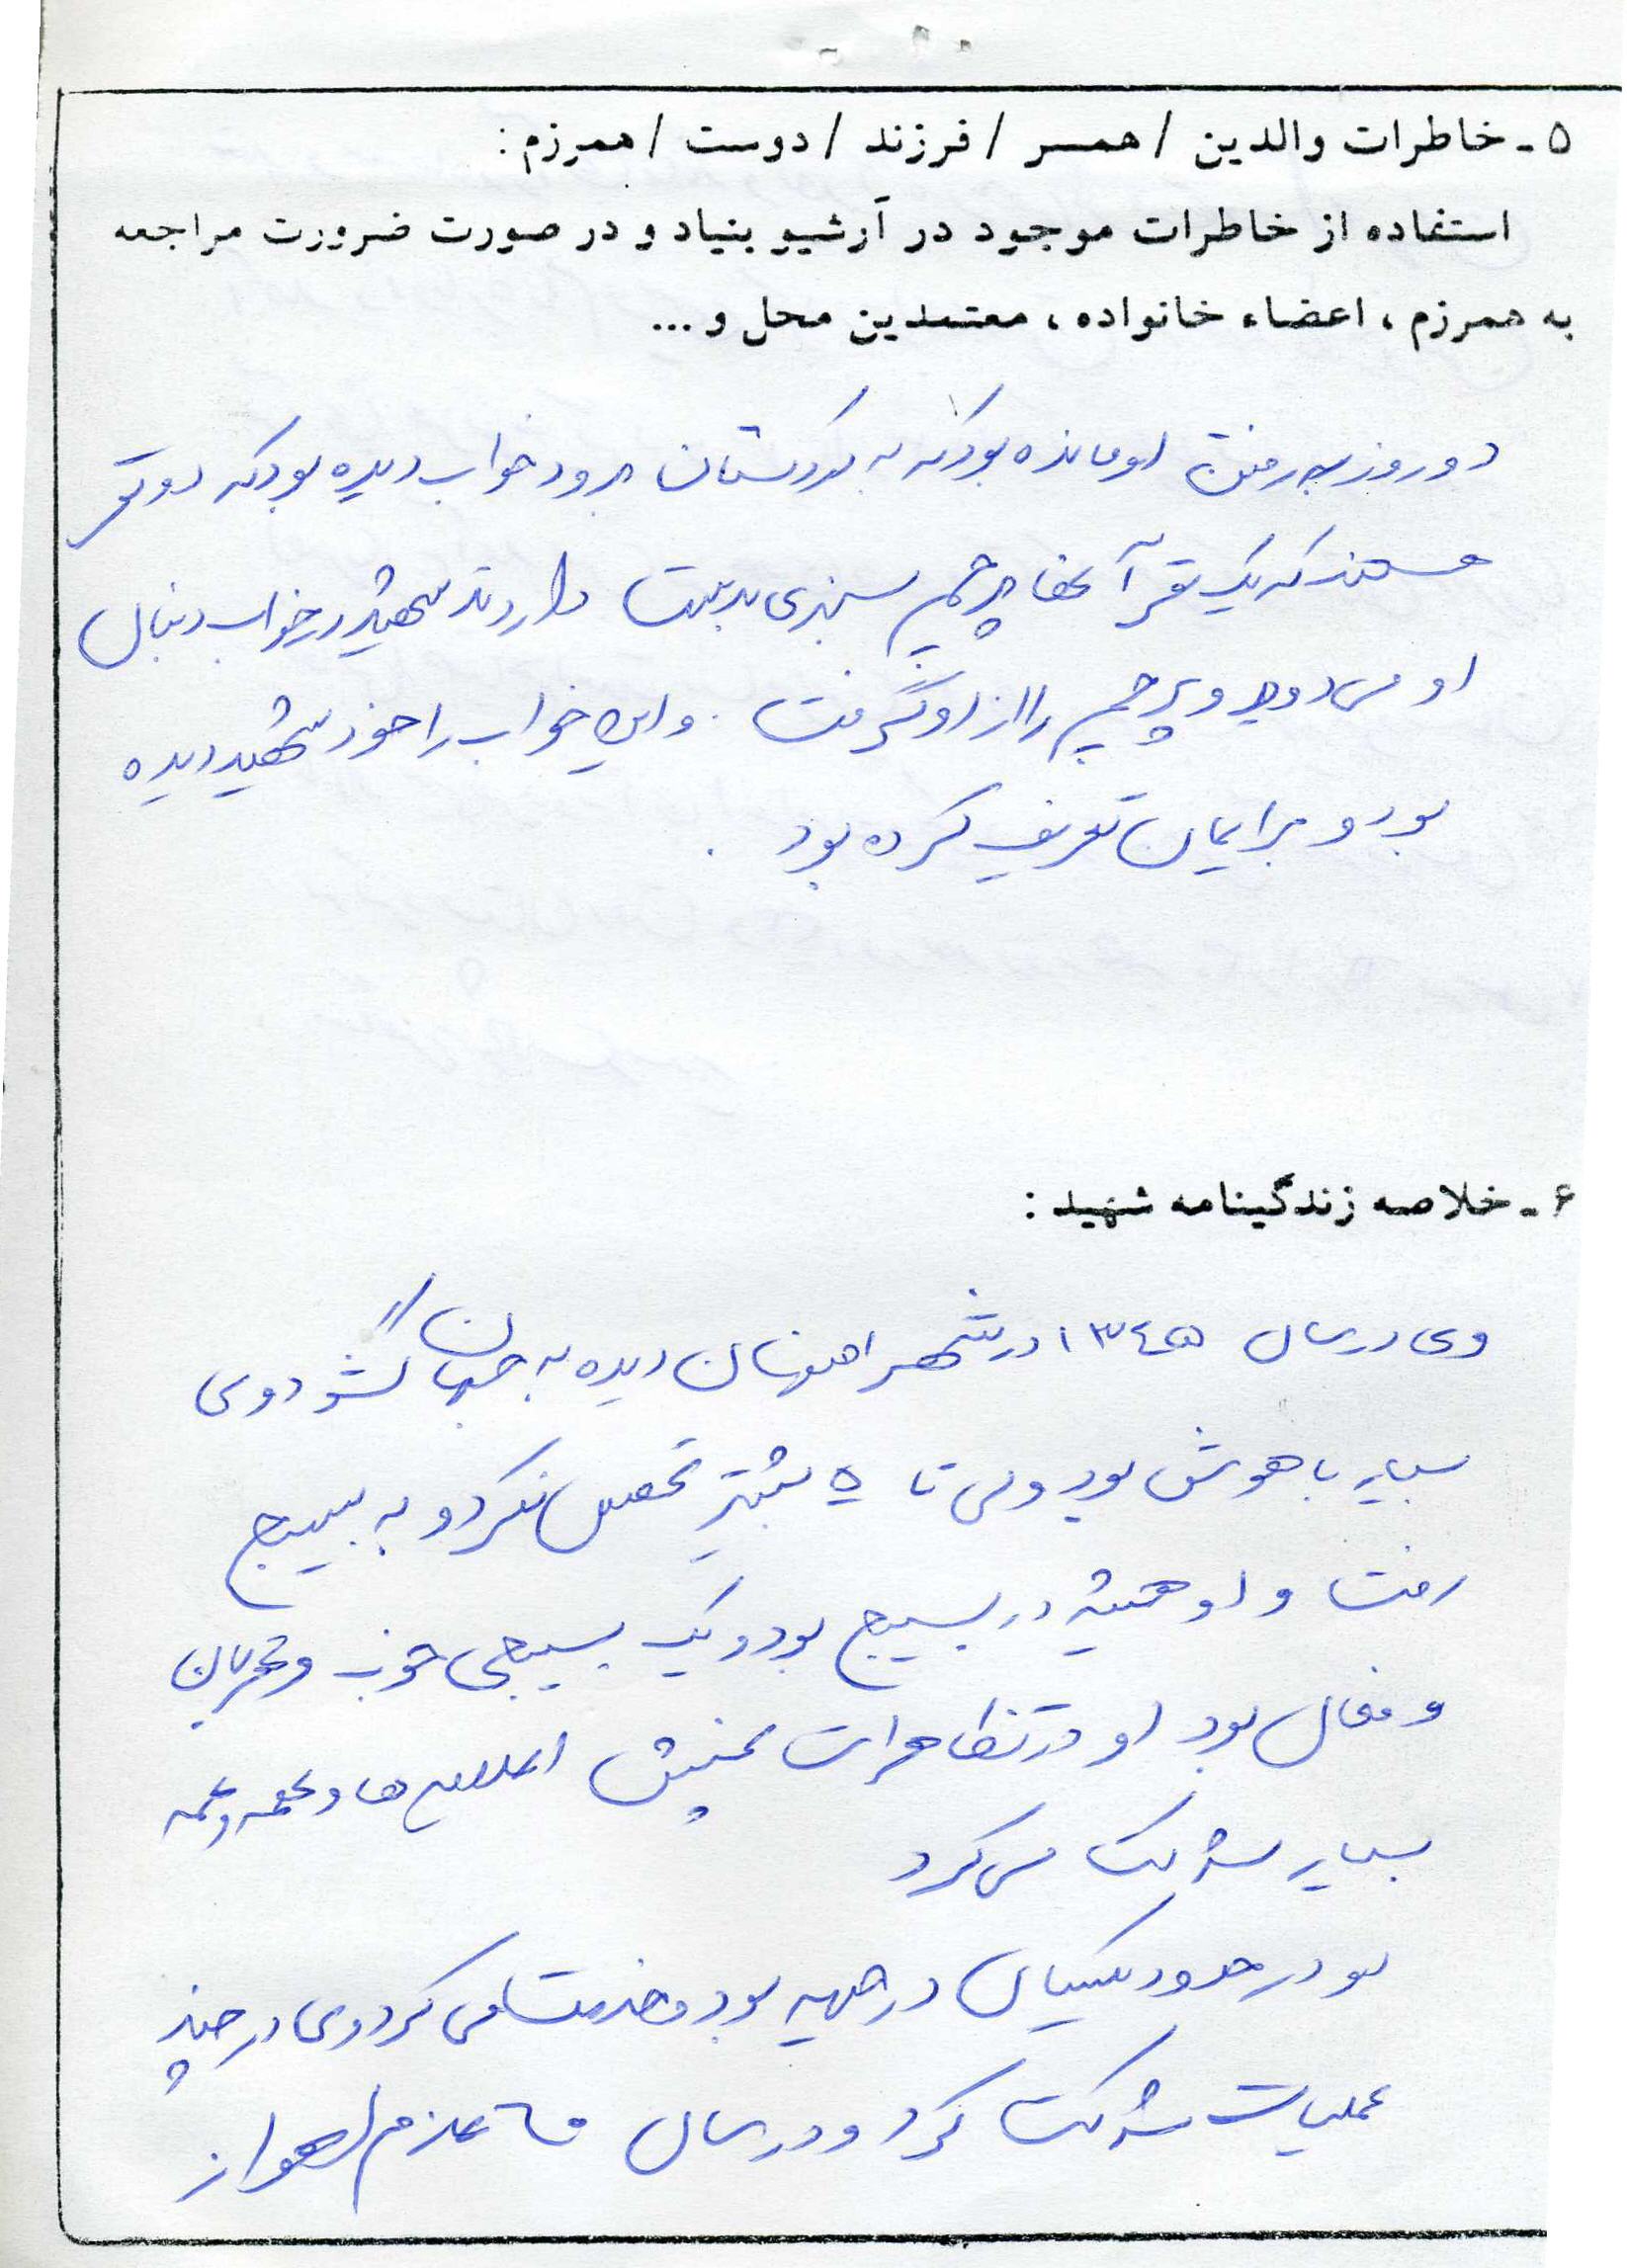 ۵ - خاطرات والدین / همسر / فرزند / دوست / همرزم :
استفاده از خاطرات موجود در آرشیو بنیاد و در صورت ضرورت مراجعه
به همرزم ، اعضاء خانواده ، معتمدین محل و ...
دو روز به رفتن او مانده بود که به کردستان برود خواب دیده بود که دو نفر
هستند که یک نفر آنها پرچم سبزی بدست دارند شهید در خواب دنبال
او می دوید و پرچم را از او گرفت . و این خواب را خود شهید دیده
بود و برایمان تعریف کرده بود .
۶ - خلاصه زندگینامه شهید :
وی در سال ۱۳۴۵ در شهر اصفهان دیده به جهان گشود وی
بسیار باهوش بود ولی تا ۵ بیشتر تحصیل نکرد و به بسیج
رفت و او همیشه در بسیج بود و یک بسیجی خوب و مهربان
و فعال بود او در تظاهرات پخش اعلامیه ها و غیره
بسیار شرکت می کرد
او در حدود یکسال در جبهه بود و خدمت می کرد وی در چند
عملیات شرکت کرد و در سال عازم اهواز